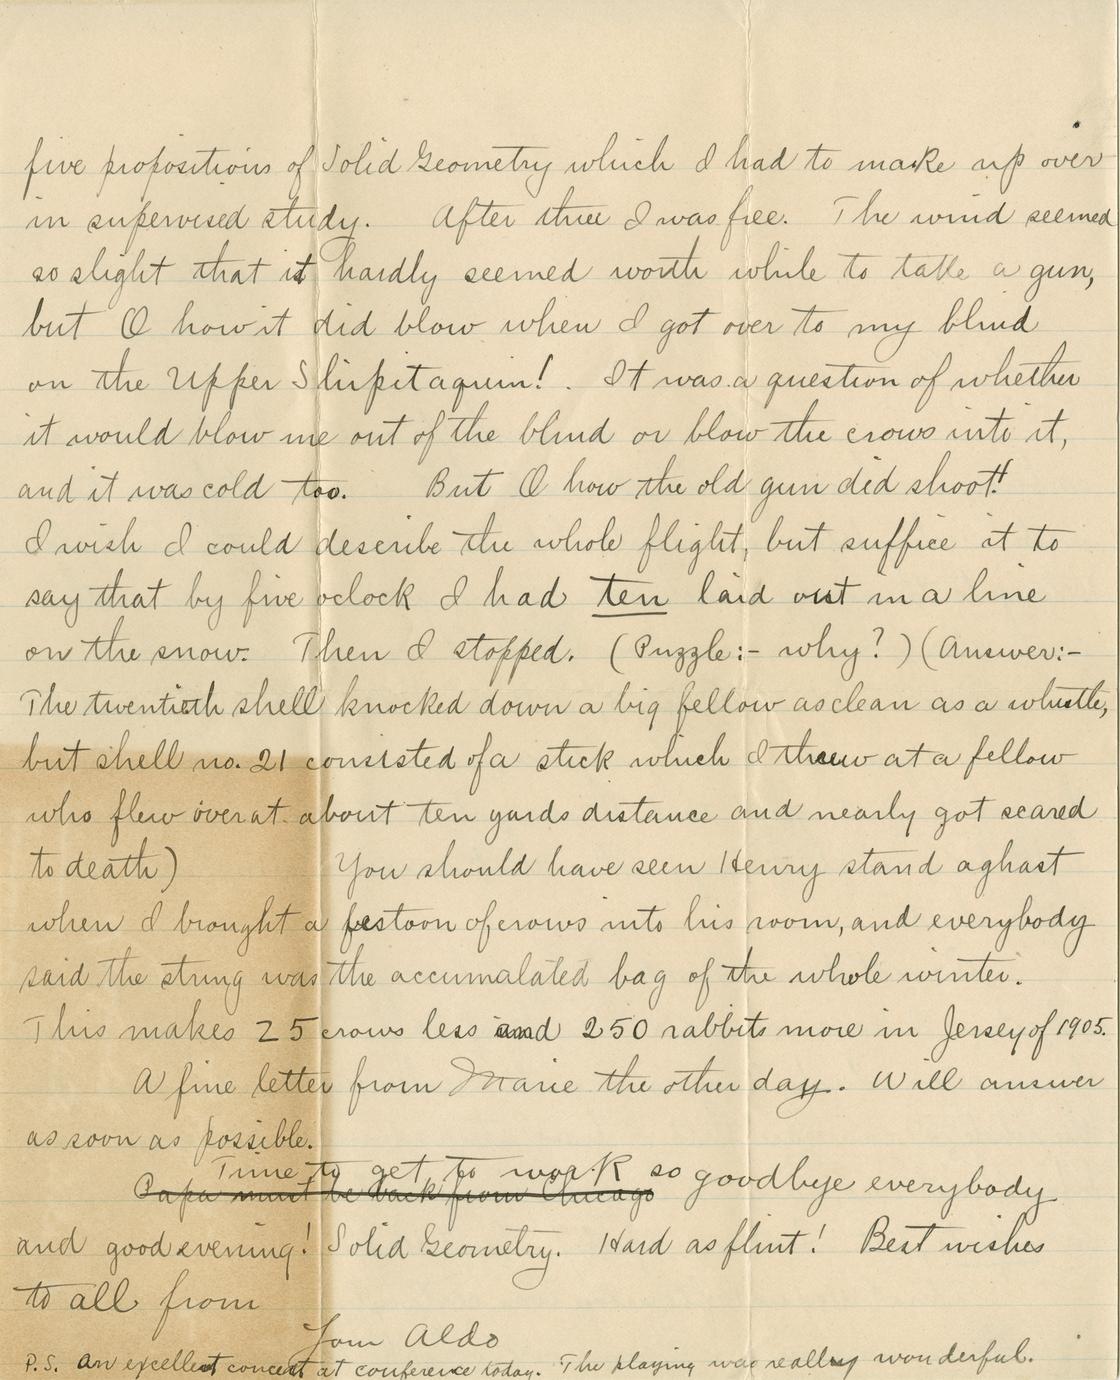 five propositions of Solid Geometry which I had to make up over
in supervised study. After three I was free. The wind seemed
so slight that it hardly seemed worth while to take a gun,
but O how it did blow when I got over to my blind
on the Upper Shipitaquin! . It was a question of whether
it would blow me out of the blind or blow the crows into it,
and it was cold too. But O how the old gun did shoot!!
I wish I could describe the whole flight, but suffice it to
say that by five oclock I had ten laid out in a line
on the snow. Then I stopped. (Puzzle:- why?) (Answer:-
The twentieth shell knocked down a big fellow as clean as a whistle,
but shell no. 21 consisted of a stick which I threw at a fellow
who flew over at about ten yards distance and nearly got scared
to death) You should have seen Henry stand aghast
when I brought a festoon of crows into his room, and everybody
said the string was the accumalated bag of the whole winter.
This makes 25 crows less and 250 rabbits more in Jersey of 1905.
A fine letter from Marie the other day. Will answer
as soon as possible.
Time to get to work so goodbye everybody
Papa must be back from Chicago
and good evening! Solid Geometry. Hard as flint! Best wishes
to all from
Your Aldo
P.S. An excellent concert at conference today. The playing was really wonderful.